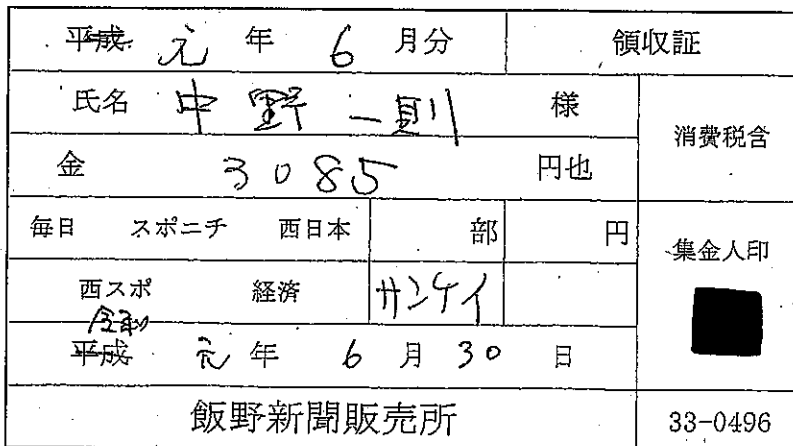 平成 元 年 6 月分 領収証
氏名 中野一則 様
消費税含
金 3085 円也
毎日 スポニチ 西日本 部 円
集金人印
西スポ 経済 サンケイ
令和
平成 元 年 6 月 30 日
飯野新聞販売所 33-0496